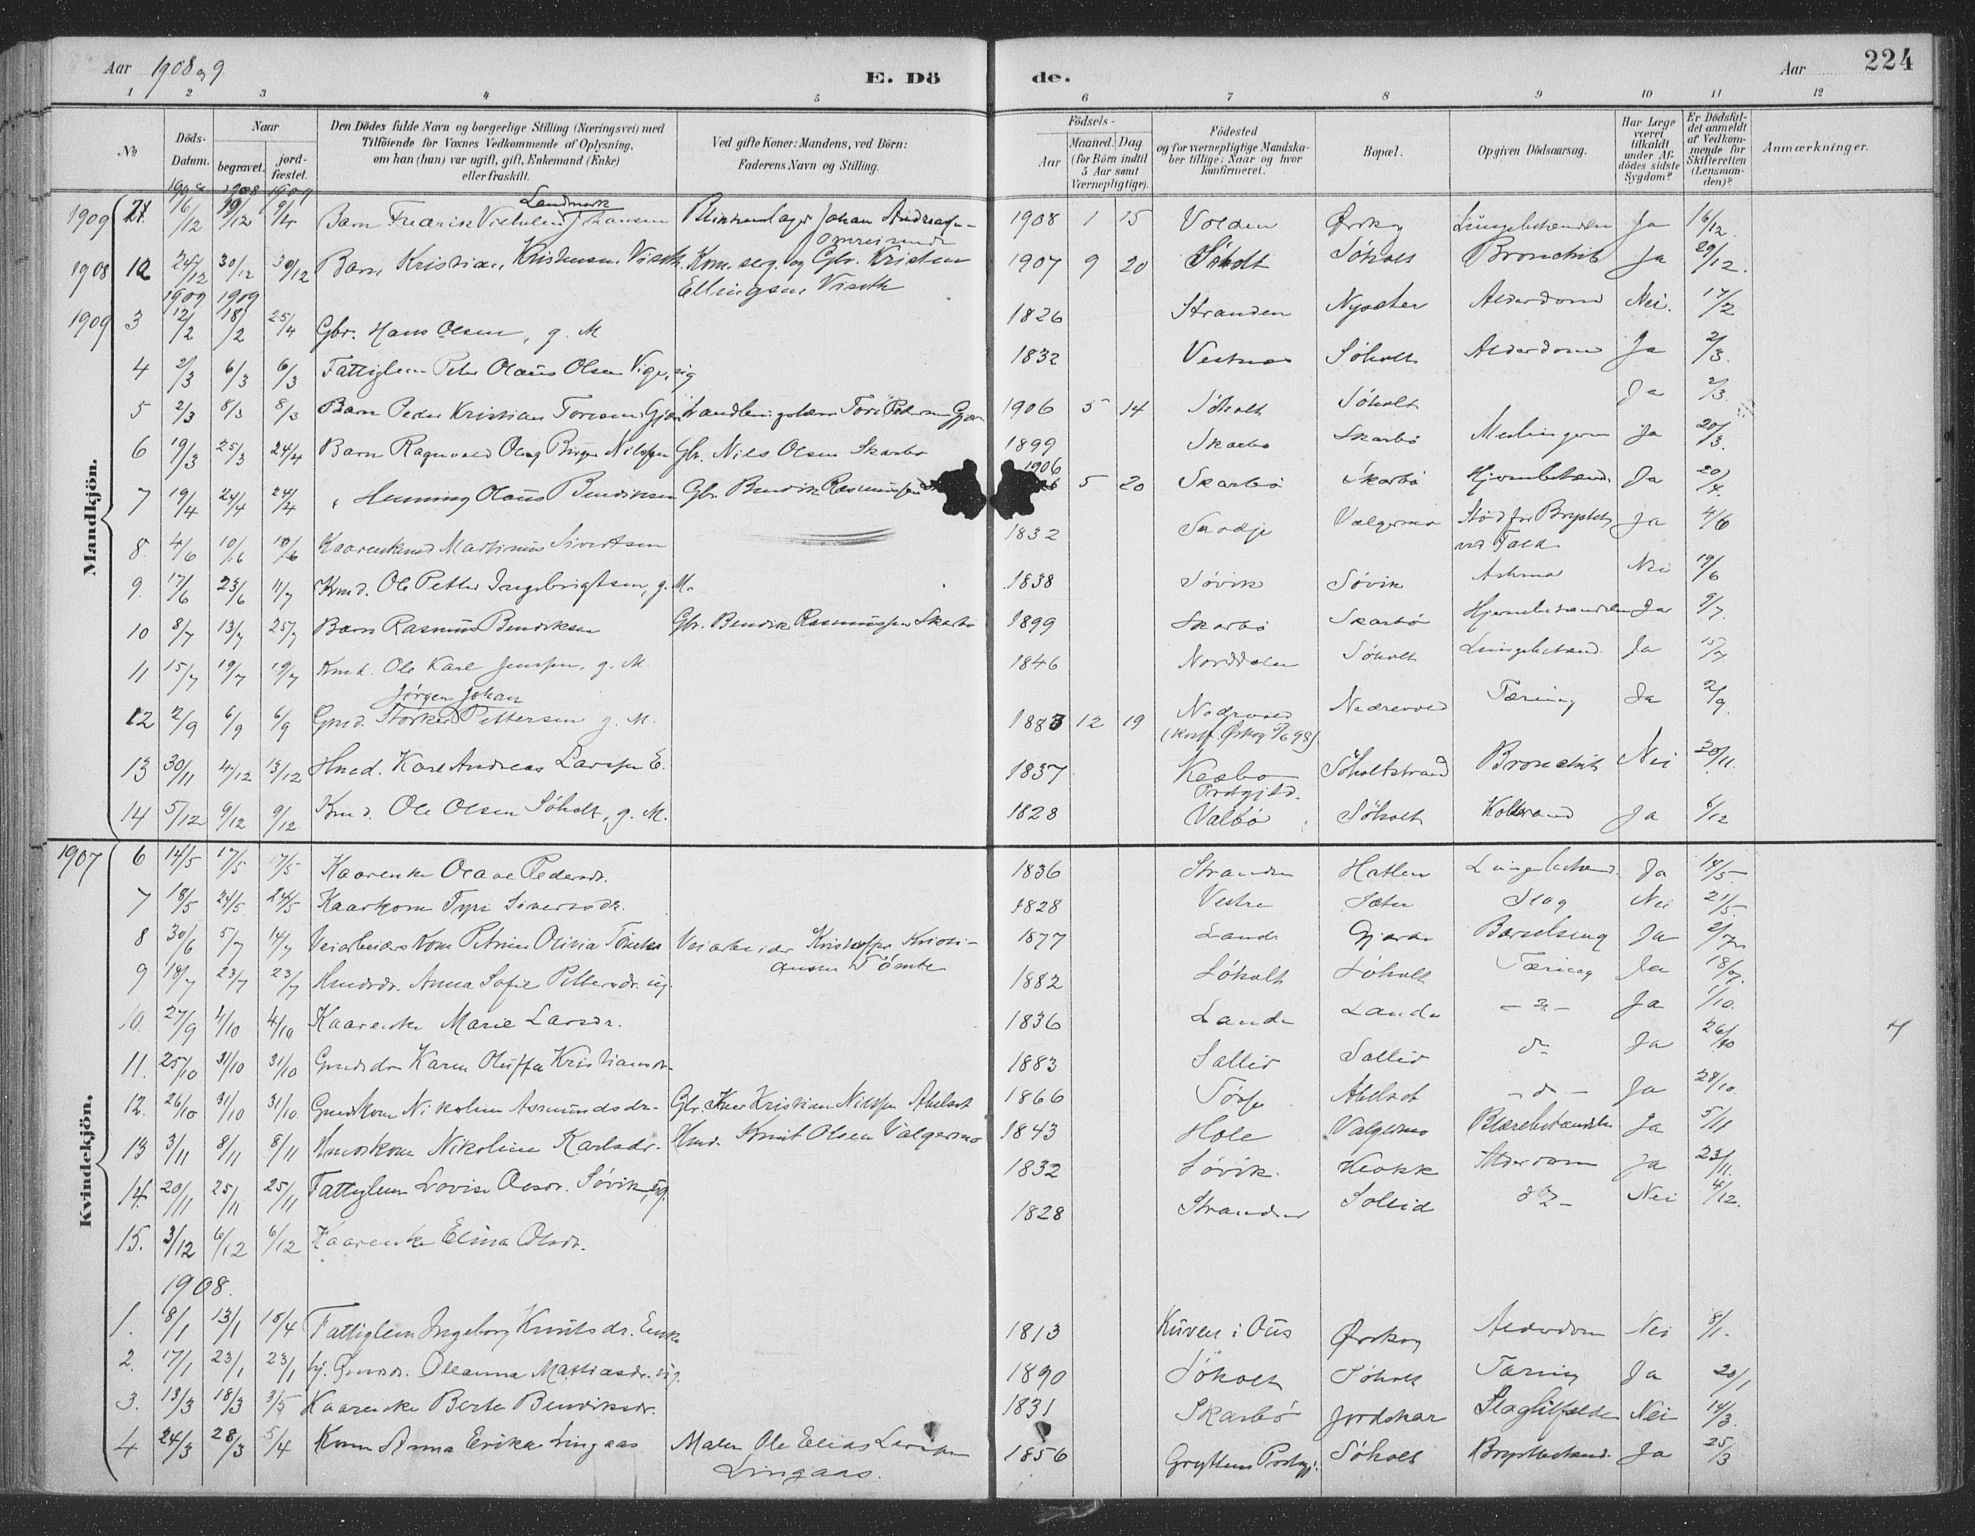 Aar 1908 og 9 E. Dö de. Aar 224
1 2 3 4 5 6 7 8 9 10 11 12
No. Döds-Datum. Naar begravet. jord-fæstet. Den Dödes fulde Navn og borgerlige Stilling (Næringsvei) med Tilföiende for Voxnes Vedkommende af Oplysning, om han (hun) var ugift, gift, Enkemand (Enke) eller fraskilt. Ved gifte Koner: Mandens, ved Börn: Faderens Navn og Stilling. Födsels- Aar Maaned. Dag. (for Börn indtil 5 Aar samt Værnepligtige). Födested og for værnepligtige Mandskaber tillige: Naar og hvor konfirmeret. Bopæl. Opgiven Dödsaarsag. Har Læge været tilkaldt under Afdödes sidste Sygdom? Er Dödsfaldet anmeldt af Vedkommende for Skifteretten (Lensmanden)? Anmærkninger.
Mandkjön.
1908 1909
Landmark
1909 16/12 19/12 Barn Fredrik Vilhelm Johansen Johan Andreas 1908 1 15 Volden Ørskog Ja 16/12
1908 12 24/12 30/12 30/12 Barn Kristian Kristensen Viset Kristen 1907 9 20 Søholt Søholt Bronchit Ja 29/12
Ellingsen
1909 1909
1909 3 12/2 18/2 25/4 Gbr. Hans Olsen, g. M 1826 Stranden Nysæter Alderdom Nei. 17/2
4 2/3 6/3 6/3 Fattiglem Peter Olaus Olsen 1832 Vestnes Søholt Alderdom Ja 2/3
5 2/3 8/3 8/3 Barn Peder Kristian 1906 5 14 Søholt Søholt Ja 2/3
6 19/3 25/3 24/4 Barn Ragnvald Olaf Birger Nilssen Gbr. Nils Olsen Skarbø 1899 Skarbø Skarbø Ja 20/3
1906
7 19/4 24/4 24/4 " Henning Olaus Bendiksen Gbr. Bendik Rasmussen 5 20 Skarbø Skarbø Hjernebetænd. Ja 20/4
8. 4/6 10/6 10/6 Kaarenkmd Martinus Sivertsen 1832 Skodje Valgermo Stød for Brystet Ja 4/6
ved Fald
9. 17/6 23/6 11/7 Kmd. Ole Petter Ingebrigtsen, g. M. 1838 Søvik Søvik Astma Nei 19/6
10 8/7 13/7 25/7 Barn Rasmus Bendiksen Gbr. Bendik Rasmussen Skarbø 1899 Skarbø Skarbø Hjernebetændelse Ja 9/7
11 15/7 19/7 19/7 Kmd. Ole Karl Jenssen, g. M. 1846 Norddalen Søholt Lungebetænd. Ja 15/7
Jørgen Johan
12 2/9 6/9 6/9 Gmd. Pettersen g. M. 1883 12 19 Nedrevold Nedrevold Tæring Ja 2/9
(konf. Ørskog 98)
13 30/11 4/12 13/12 Hmd. Karl Andreas Larssen E. 1837 Søholtstrand Bronchit Nei 30/11.
Prstgjld.
14 5/12 9/12 9/12 Kmd. Ole Olsen Søholt, g. M. 1828 Valbø Søholt Koldbrand Ja 6/12
Kvindekjön.
1907 6 14/5 17/5 17/5 Kaarenke Olave Pedersdr. 1836 Stranden Hatlen Lungebetænd. Ja 14/5
7 18/5 24/5 24/5 Kaarkone Syvertsdr. 1828 Vestre Sæter Slag Nei 21/5.
8 30/6 5/7 14/7 Veiarbeiderkone Petrine Olivia Tømte Veiarbeider Kristoffer Kristi- 1877 Lande Gjære Barselseng Ja 2/7
ansen Tømte
9 18/7 23/7 23/7 Hmdsdr. Anna Sofie Pettersdr. ug. 1882 Søholt Søholt Tæring Ja 18/7.
10. 27/9 4/10 4/10 Kaarenke Marie Larsdr. 1836 Lande Lande Ja 1/10.
11. 25/10 31/10 31/10 Gmdsdr Karen Oluffa Kristiansdr. 1883 Sollid Sollid do Ja 26/10
12. 26/10 31/10 31/10 Gmdskone Nikoline Asmundsdr. Kristian Nilssen Abelset 1866 Abelset - do - Ja 28/10
13 3/11 8/11 8/11 Hmdskone Nikoline Karlsdr. Hmd. Knut Olsen Valgermo 1843 Hole Valgermo Blærebetændelse Ja 5/11
14. 20/11 25/11 25/11 Fattiglem Lovise Olsdr. Søvik, ug. 1832 Søvik. Alderdom Ja 23/11.
15. 3/12 6/12 6/12 Kaarenke Elina Olsdr. 1828 Stranden Sollid do Nei 4/12.
1908.
1. 8/1 13/1 18/4 Fattiglem Ingeborg Knutsdr. Enke 1813 Ørskog Alderdom Nei 8/1.
2. 17/1 23/1 23/1 Oleanna Mattiasdr. ug. 1890 Søholt Søholt Tæring Ja 20/1
3. 13/3 18/3 3/5 Kaarenke Berte Bendiksdr. 1831 Skarbø Jordskar Slagtilfælde Nei 14/3
4 24/3 28/3 5/4 Kone Anna Erika Lingaas Maler Ole Elias Larssen 1856 Gryttens Prstgj. Søholt Brystbetænd. Ja 25/3
Lingaas.